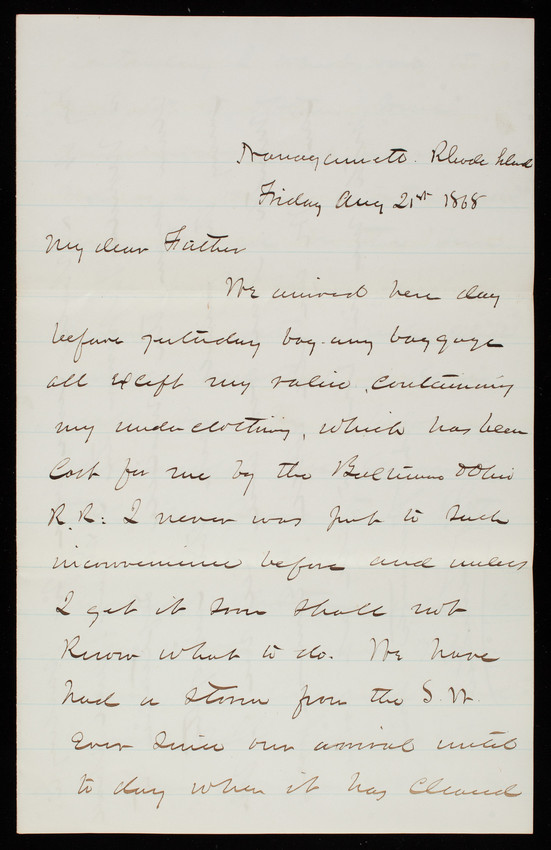 Narragansett. Rhode Island
Friday Aug 21st 1868
My dear Father
We arrived here day
before yesterday bag and baggage
all except my valise, containing
my underclothing, which has been
lost for me by the Baltimore & Ohio
R.R: I never was put to such
inconvenience before and unless
I get it soon shall not
know what to do. We have
had a storm from the S.W.
ever since our arrival until
to day when it has cleared